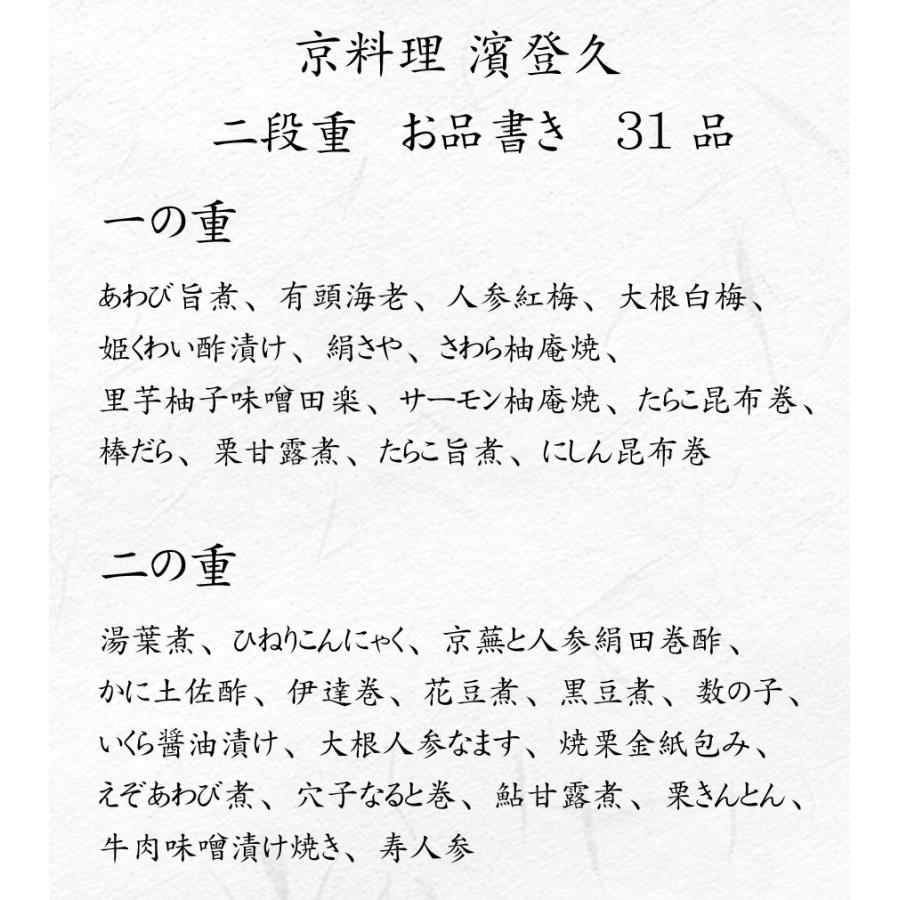 京料理 濱登久
二段重 お品書き 31品
一の重
あわび旨煮、有頭海老、人参紅梅、大根白梅、
姫くわい酢漬け、絹さや、さわら柚庵焼、
里芋柚子味噌田楽、サーモン柚庵焼、たらこ昆布巻、
棒だら、栗甘露煮、たらこ旨煮、にしん昆布巻
二の重
湯葉煮、ひねりこんにゃく、京蕪と人参絹田巻酢、
かに土佐酢、伊達巻、花豆煮、黒豆煮、数の子、
いくら醤油漬け、大根人参なます、焼栗金紙包み、
えぞあわび煮、穴子なると巻、鮎甘露煮、栗きんとん、
牛肉味噌漬け焼き、寿人参